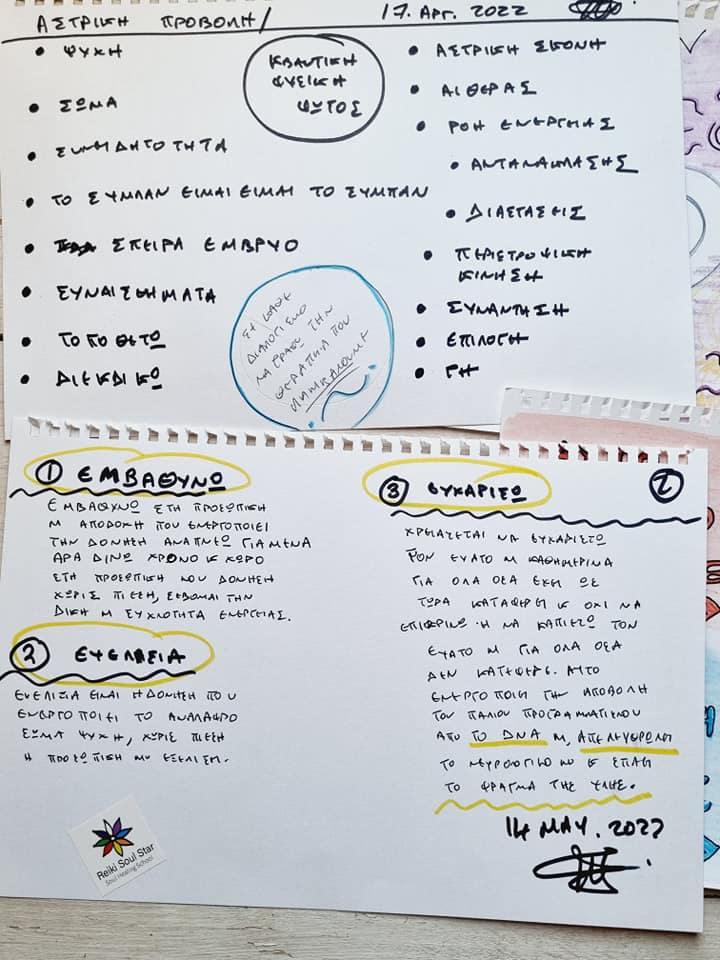 ΑΣΤΡΙΚΗ ΠΡΟΒΟΛΗ/
17. Απρ. 2022
• ΨΥΧΗ
• ΣΩΜΑ
• ΣΥΝΕΙΔΗΤΟΤΗΤΑ
• ΤΟ ΣΥΜΠΑΝ ΕΙΜΑΙ ΕΙΜΑΙ ΤΟ ΣΥΜΠΑΝ
• ΣΠΕΙΡΑ ΕΜΒΡΥΟ
• ΣΥΝΑΙΣΘΗΜΑΤΑ
• ΤΟΠΟΘΕΤΩ
• ΔΙΕΚΔΙΚΩ
ΚΒΑΝΤΙΚΗ
ΦΥΣΙΚΗ
ΦΩΤΟΣ
• ΑΣΤΡΙΚΗ ΣΚΟΝΗ
• ΑΙΘΕΡΑΣ
• ΡΟΗ ΕΝΕΡΓΕΙΑΣ
• ΑΝΤΑΝΑΚΛΑΣΗΣ
• ΔΙΑΣΤΑΣΕΙΣ
• ΠΕΡΙΣΤΡΟΦΙΚΗ
ΚΙΝΗΣΗ
• ΣΥΝΑΝΤΗΣΗ
• ΕΠΙΛΟΓΗ
• ΓΗ
ΔΙΑΛΟΓΙΣΜΟ
ΝΑ ΓΡΑΦΩ ΤΗΝ
ΘΕΡΑΠΕΙΑ ΠΟΥ
ΛΑΜΒΑΝΟΥΜΕ
1 ΕΜΒΑΘΥΝΩ
ΕΜΒΑΘΥΝΩ ΣΤΗ ΠΡΟΣΩΠΙΚΗ
Μ ΑΠΟΔΟΧΗ ΠΟΥ ΕΝΕΡΓΟΠΟΙΕΙ
ΤΗΝ ΔΟΝΗΣΗ ΑΝΑΠΝΕΩ ΓΙΑ ΜΕΝΑ
ΑΡΑ ΔΙΝΩ ΧΡΟΝΟ Κ ΧΩΡΟ
ΣΤΗ ΠΡΟΣΩΠΙΚΗ ΜΟΥ ΔΟΝΗΣΗ
ΧΩΡΙΣ ΠΙΕΣΗ, ΣΕΒΟΜΑΙ ΤΗΝ
ΔΙΚΗ Μ ΣΥΧΝΟΤΗΤΑ ΕΝΕΡΓΕΙΑΣ.
2 ΕΥΕΛΙΞΙΑ
ΕΥΕΛΙΞΙΑ ΕΙΝΑΙ Η ΔΟΝΗΣΗ ΠΟΥ
ΕΝΕΡΓΟΠΟΙΕΙ ΤΟ ΑΝΑΛΑΦΡΟ
ΣΩΜΑ ΨΥΧΗ, ΧΩΡΙΣ ΠΙΕΣΗ
Η ΠΡΟΣΩΠΙΚΗ ΜΟΥ ΕΞΕΛΙΞΗ.
3 ΕΥΧΑΡΙΣΤΩ
2
ΧΡΕΙΑΖΕΤΑΙ ΝΑ ΕΥΧΑΡΙΣΤΩ
ΤΟΝ ΕΥΑΤΟ Μ ΚΑΘΗΜΕΡΙΝΑ
ΓΙΑ ΟΛΑ ΟΣΑ ΕΧΕΙ ΩΣ
ΤΩΡΑ ΚΑΤΑΦΕΡΕΙ Κ ΟΧΙ ΝΑ
ΕΠΙΚΡΙΝΩ Η ΝΑ ΚΑΠΙΕΖΩ ΤΟΝ
ΕΥΑΤΟ Μ ΓΙΑ ΟΛΑ ΟΣΑ
ΔΕΝ ΚΑΤΕΦΕΡΕ. ΑΥΤΟ
ΕΝΕΡΓΟΠΟΙΕΙ ΤΗΝ ΑΠΟΒΟΛΗ
ΤΟΥ ΠΑΛΙΟΥ ΠΡΟΓΡΑΜΜΑΤΙΣΜΟΥ
ΑΠΟ ΤΟ DNA Μ, ΑΠΕΛΕΥΘΕΡΩΝΕΙ
ΤΟ ΝΕΥΡΟΛΟΓΙΚΟ ΜΟΥ Κ ΣΠΑΕΙ
ΤΟ ΦΡΑΓΜΑ ΤΗΣ ΥΛΗΣ.
14 ΜΑΥ. 2022
Reiki Soul Star
Soul Healing School